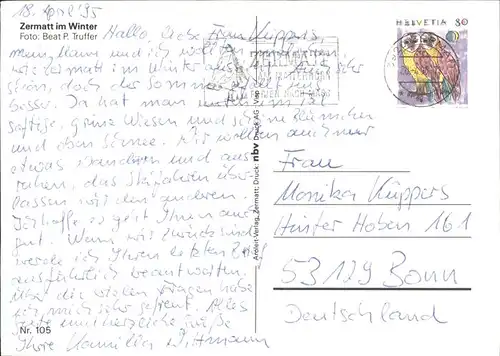 18. April '95
Zermatt im Winter
Foto: Beat P. Truffer
Hallo, liebe Frau Küppers,
mein Mann und ich wollten
wie Zermatt im Winter aussieht. Sehr
schön, doch der Sommer
besser. Da hat man
saftige, grüne Wiesen und schöne Blümchen
und oben Schnee. Wir wollen auch nur
etwas wandern und aus-
ruhen, das Skifahren über-
lassen wir den anderen.
Ich hoffe es geht Ihnen auch
gut. Wenn wir zurück sind
werde ich Ihren letzten Brief
ausführlich beantworten.
Über die vielen Fragen habe
ich mich sehr gefreut. Alles
Gute und herzliche Grüße
Ihre Kamilla Wittmann
Nr. 105
Aroleit-Verlag, Zermatt, Druck: nbv Druck AG
HELVETIA 80
Frau
Monika Küppers
Hinter Hoben 161
53129 Bonn
Deutschland